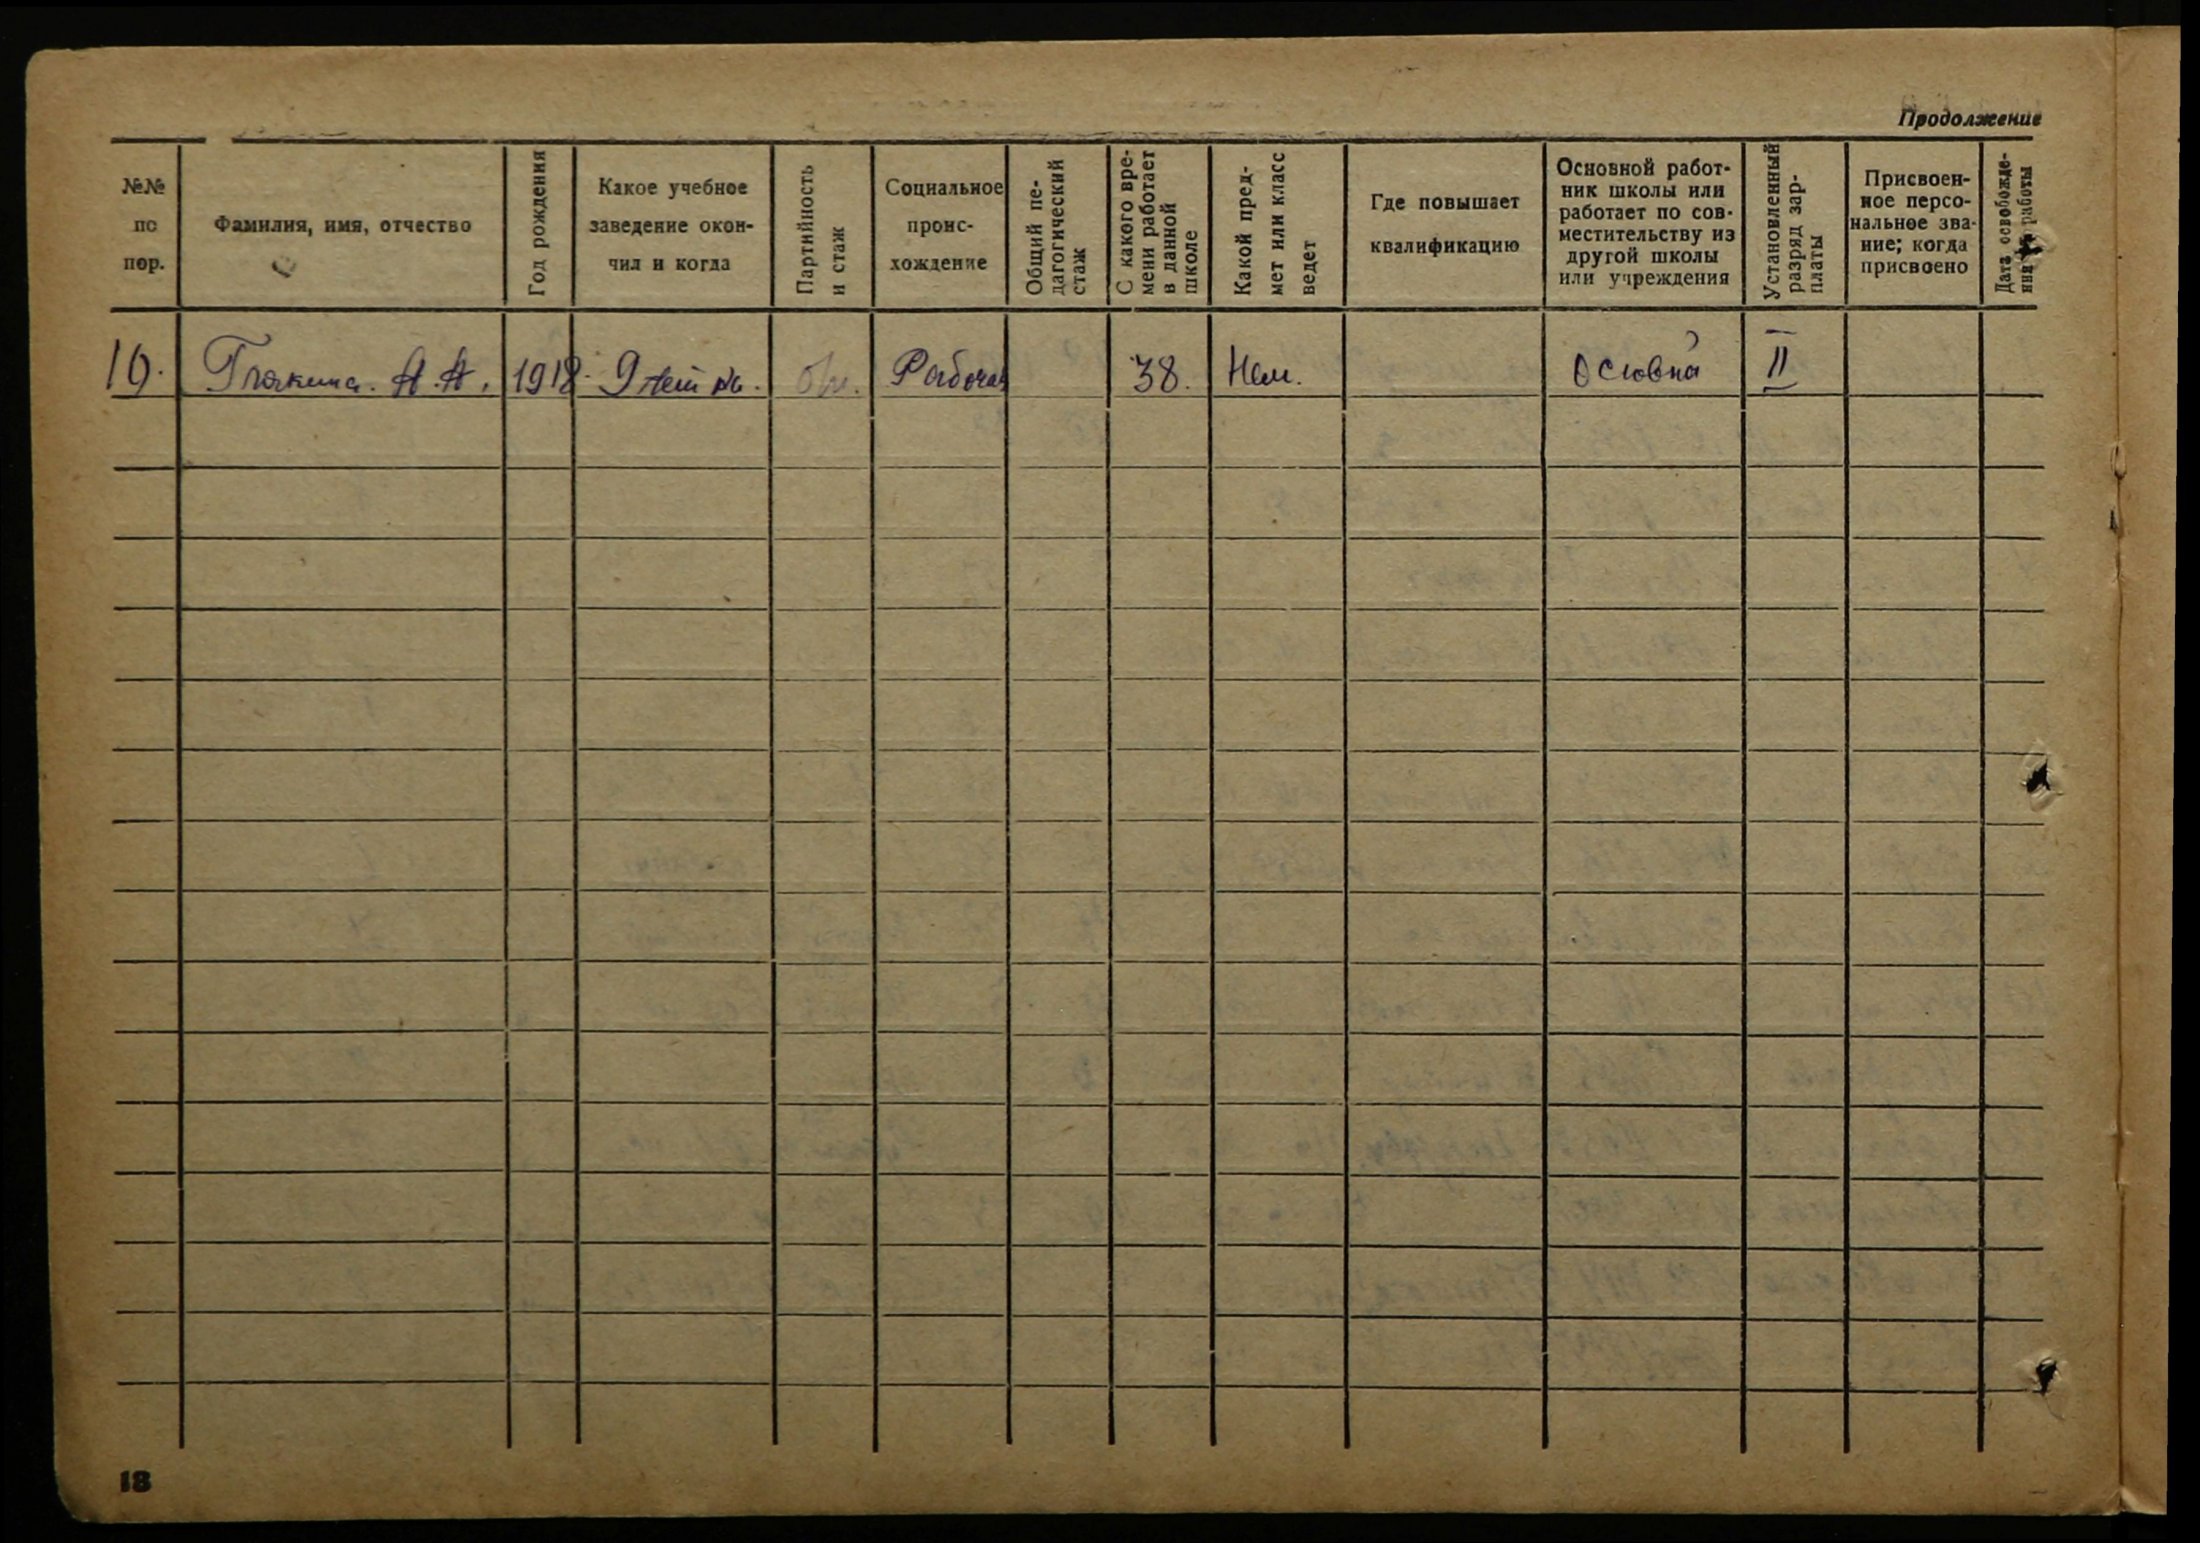 Продолжение
№№
по
пор.
Фамилия, имя, отчество
Год рождения
Какое учебное
заведение окон-
чил и когда
Партийность
и стаж
Социальное
проис-
хождение
Общий пе-
дагогический
стаж
С какого вре-
мени работает
в данной
школе
Какой пред-
мет или класс
ведет
Где повышает
квалификацию
Основной работ-
ник школы или
работает по сов-
местительству из
другой школы
или учреждения
Установленный
разряд зар-
платы
Присвоен-
ное персо-
нальное зва-
ние; когда
присвоено
Дата освобожде-
ния работы
А. А. 1918 Рабочая 38. Нем. II
18